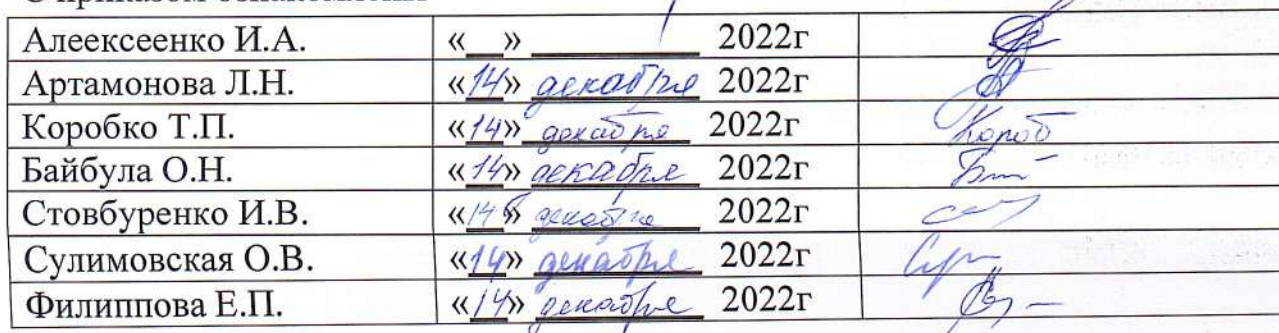 Алеексеенко И.А. «__» ________ 2022г
Артамонова Л.Н. «14» декабря 2022г
Коробко Т.П. «14» декабря 2022г Короб
Байбула О.Н. «14» декабря 2022г
Стовбуренко И.В. «14» декабря 2022г
Сулимовская О.В. «14» декабря 2022г
Филиппова Е.П. «14» декабря 2022г